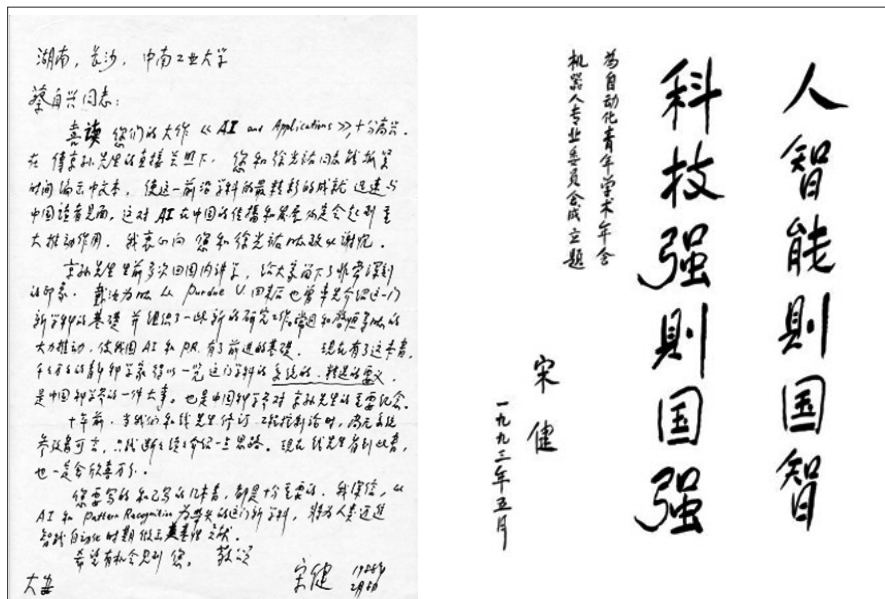 湖南，长沙，中南工业大学
蔡自兴同志：
喜读您们的大作《AI and Applications》，十分高兴．
在傅京孙先生的直接关照下，您和徐光祐同志能抓紧
时间编出中文本，使这一前沿学科的最精彩的成就迅速与
中国读者见面，这对AI在中国的传播和发展必定会起到重
大推动作用．我衷心向您和徐光祐同志致以谢忱．
京孙先生生前多次回国内讲学，给大家留下了非常深刻
的印象．
Purdue U. 回来后也曾率先介绍这一门
新学科的基础并组织了一些新的研究工作
大力推动，使我国AI和PR．有了前进的基础．现在有了这本书，
千千万万的青年科学家得以一览这门学科的系统的、精辟的要义，
是中国科学界的一件大事．也是中国科学界对京孙先生的重要纪念．
十年前，当我们和钱先生修订工程控制论时，尚无系统
参考书可言，
现在钱先生看到此书，
也一定会欣喜万分．
您要写的和已写的几本书，都是十分重要的．我深信，以
AI和Pattern Recognition为带头的这门新学科，将为人类迈进
智能自动化时期做出奠基性贡献．
希望有机会见到您． 敬颂
大安
宋健
人智能則国智
科技强則国强
为自动化青年学术年会
机器人专业委员会成立题
宋健
一九九三年五月